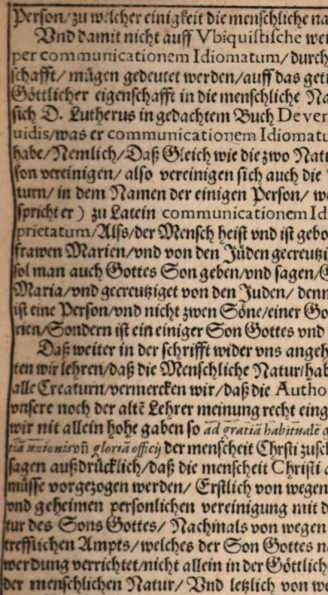 Person/ zu welcher einigkeit die menschliche na
Vnd damit nicht auff Vbiquistische wei
per communicationem Idiomatum/ durch
schafft/ mügen gedeutet werden/ auff das get
Göttlicher eigenschafft in die menschliche Na
sich D. Lutherus in gedachtem Buch De ver
uidis/ was er communicationem Idiomat
habe/ Nemlich/ Daß Gleich wie die zwo Nat
son vereinigen/ also vereinigen sich auch die
turn/ in dem Namen der einigen Person/ w
spricht er) zu Latein communicationem Id
prietatum/ Alls/ der Mensch heist vnd ist gebo
frawen Marien/ vnd von den Jüden gecreutzi
sol man auch Gottes Son geben/ vnd sagen/ G
Maria/ vnd gecreutziget von den Juden/ denn
ist eine Person/ vnd nicht zwen Söne/ einer Go
rien/ Sondern ist ein einiger Son Gottes vnd
Daß weiter in der schrifft wider vns angeh
ten wir lehren/ daß die Menschliche Natur/ hab
alle Creaturn/ vermercken wir/ daß die Autho
vnsere noch der altē Lehrer meinung recht eing
wir nit allein hohe gaben so ad gratiā habitualē
tiā vnionis vñ gloriā officij der menscheit Chrsti zusch
sagen außdrücklich/ daß die menscheit Christi
müsse vorgezogen werden/ Erstlich von wegen
vnd geheimen personlichen vereinigung mit d
tur des Sons Gottes/ Nachmals von wegen
trefflichen Ampts/ welches der Son Gottes n
werdung verrichtet/ nicht allein in der Göttlich
der menschlichen Natur/ Vnd letzlich von we